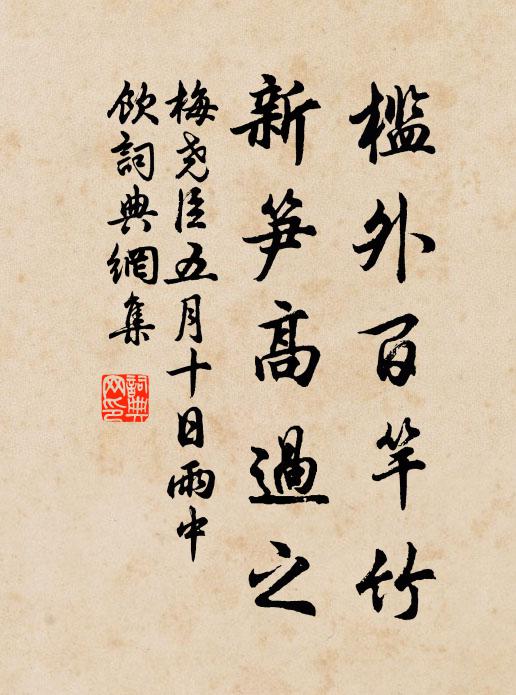 檻外百竿竹
新笋高過之
梅尧臣五月十日雨中
飲詞典網集
詞典
网印